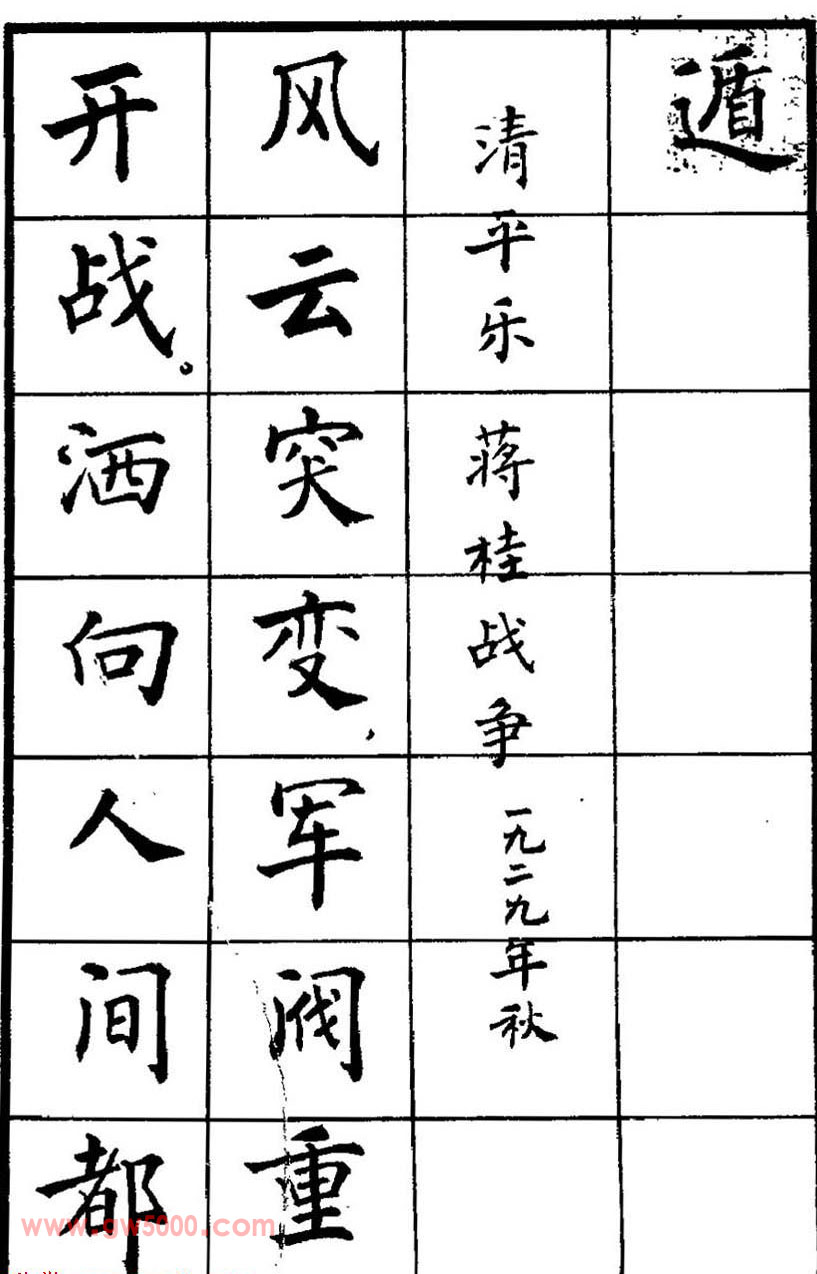 遁
清平乐 蒋桂战争 一九二九年秋
风云突变，军阀重
开战。洒向人间都
www.gw5000.com